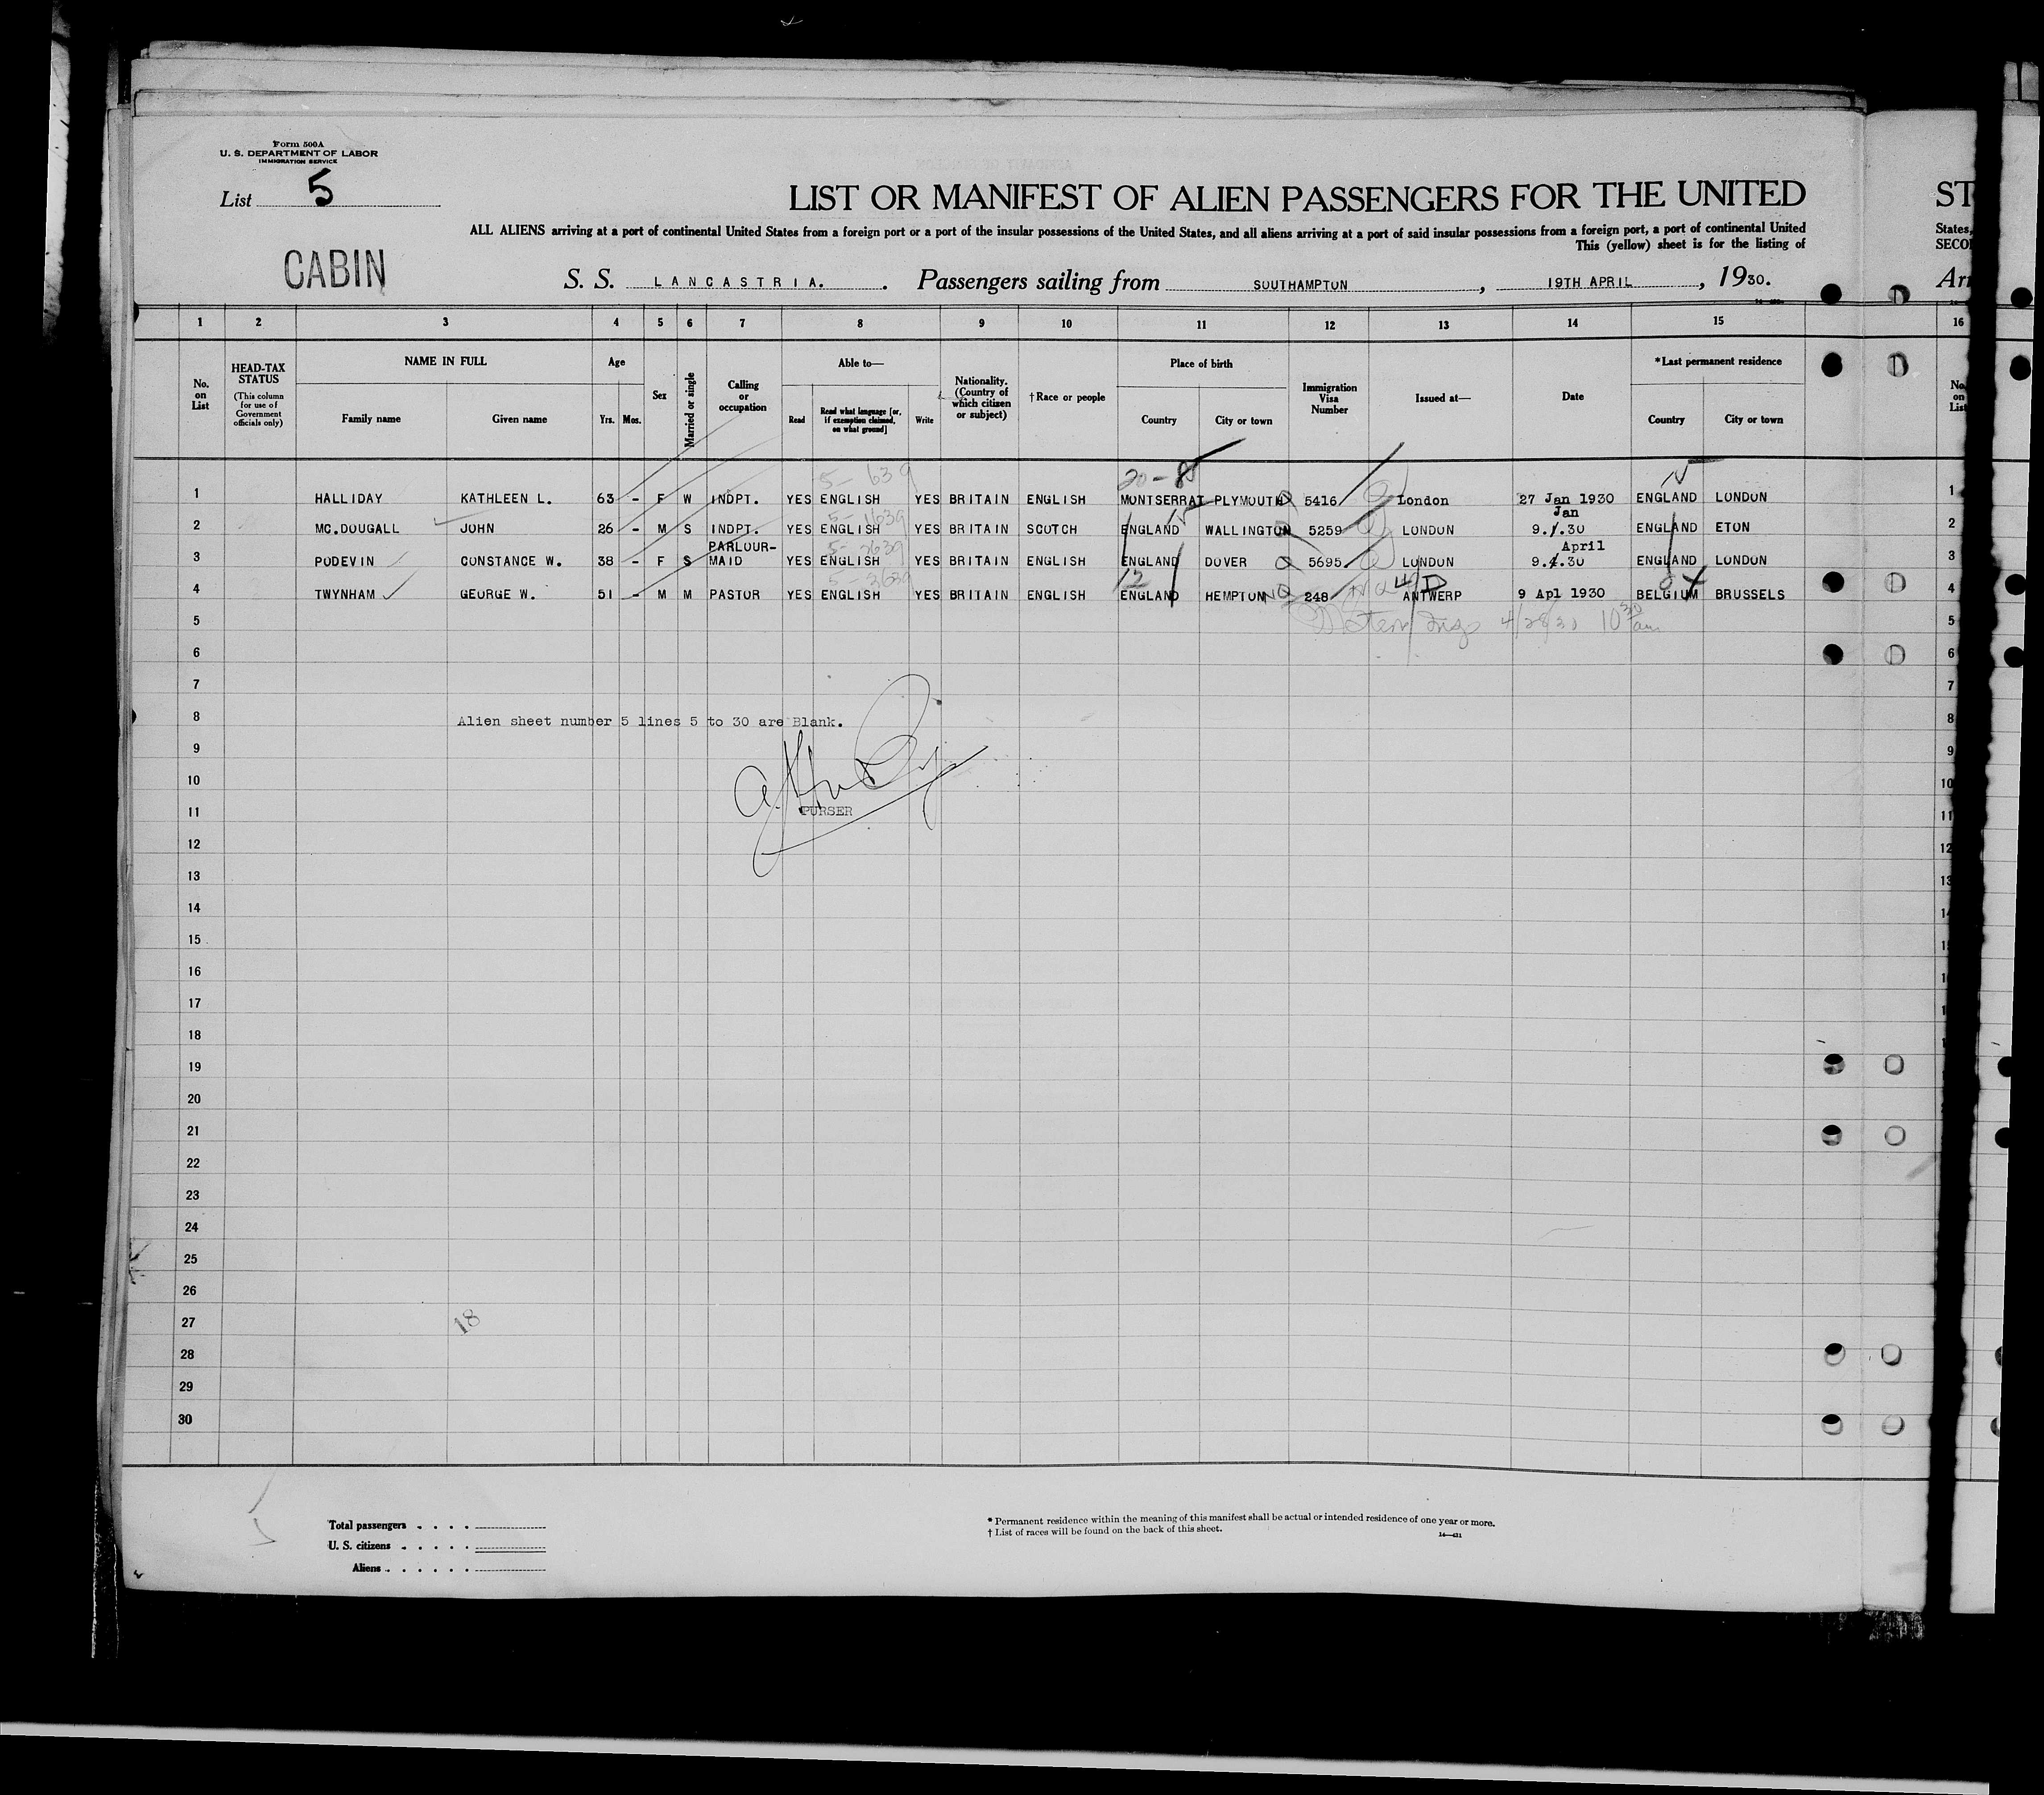 Form 500A
U. S. DEPARTMENT OF LABOR
IMMIGRATION SERVICE
List 5
LIST OR MANIFEST OF ALIEN PASSENGERS FOR THE UNITED ST
ALL ALIENS arriving at a port of continental United States from a foreign port or a port of the insular possessions of the United States, and all aliens arriving at a port of said insular possessions from a foreign port, a port of continental United States,
This (yellow) sheet is for the listing of SECO
CABIN
S. S. LANCASTRIA. . Passengers sailing from SOUTHAMPTON , 19TH APRIL , 1930.
1 2 3 4 5 6 7 8 9 10 11 12 13 14 15 16
No. on List
HEAD-TAX STATUS (This column for use of Government officials only)
NAME IN FULL
Family name Given name
Age
Yrs. Mos.
Sex
Married or single
Calling or occupation
Able to—
Read Read what language [or, if exemption claimed, on what ground] Write
Nationality. (Country of which citizen or subject)
†Race or people
Place of birth
Country City or town
Immigration Visa Number
Issued at—
Date
*Last permanent residence
Country City or town
No. on List
5-639 20-8
1 HALLIDAY KATHLEEN L. 63 - F W INDPT. YES ENGLISH YES BRITAIN ENGLISH MONTSERRAT PLYMOUTH 5416 London 27 Jan 1930 ENGLAND LONDON 1
5-1639 Jan
2 MC.DOUGALL JOHN 26 - M S INDPT. YES ENGLISH YES BRITAIN SCOTCH ENGLAND WALLINGTON 5259 LONDON 9.1.30 ENGLAND ETON 2
PARLOUR- 5-2639 April
3 PODEVIN CONSTANCE W. 38 - F S MAID YES ENGLISH YES BRITAIN ENGLISH ENGLAND DOVER 5695. LONDON 9.4.30 ENGLAND LONDON 3
5-3639 12
4 TWYNHAM GEORGE W. 51 - M M PASTOR YES ENGLISH YES BRITAIN ENGLISH ENGLAND HEMPTON 248 ANTWERP 9 Apl 1930 BELGIUM BRUSSELS 4
5 4/28/30 10 30 am 5
6 6
7 7
8 Alien sheet number 5 lines 5 to 30 are Blank. 8
9 9
10 10
11 PURSER 11
12 12
13
14
15
16
17
18
19
20
21
22
23
24
25
26
27 18
28
29
30
Total passengers . . . .
U. S. citizens . . . . .
Aliens . . . . . .
* Permanent residence within the meaning of this manifest shall be actual or intended residence of one year or more.
† List of races will be found on the back of this sheet.